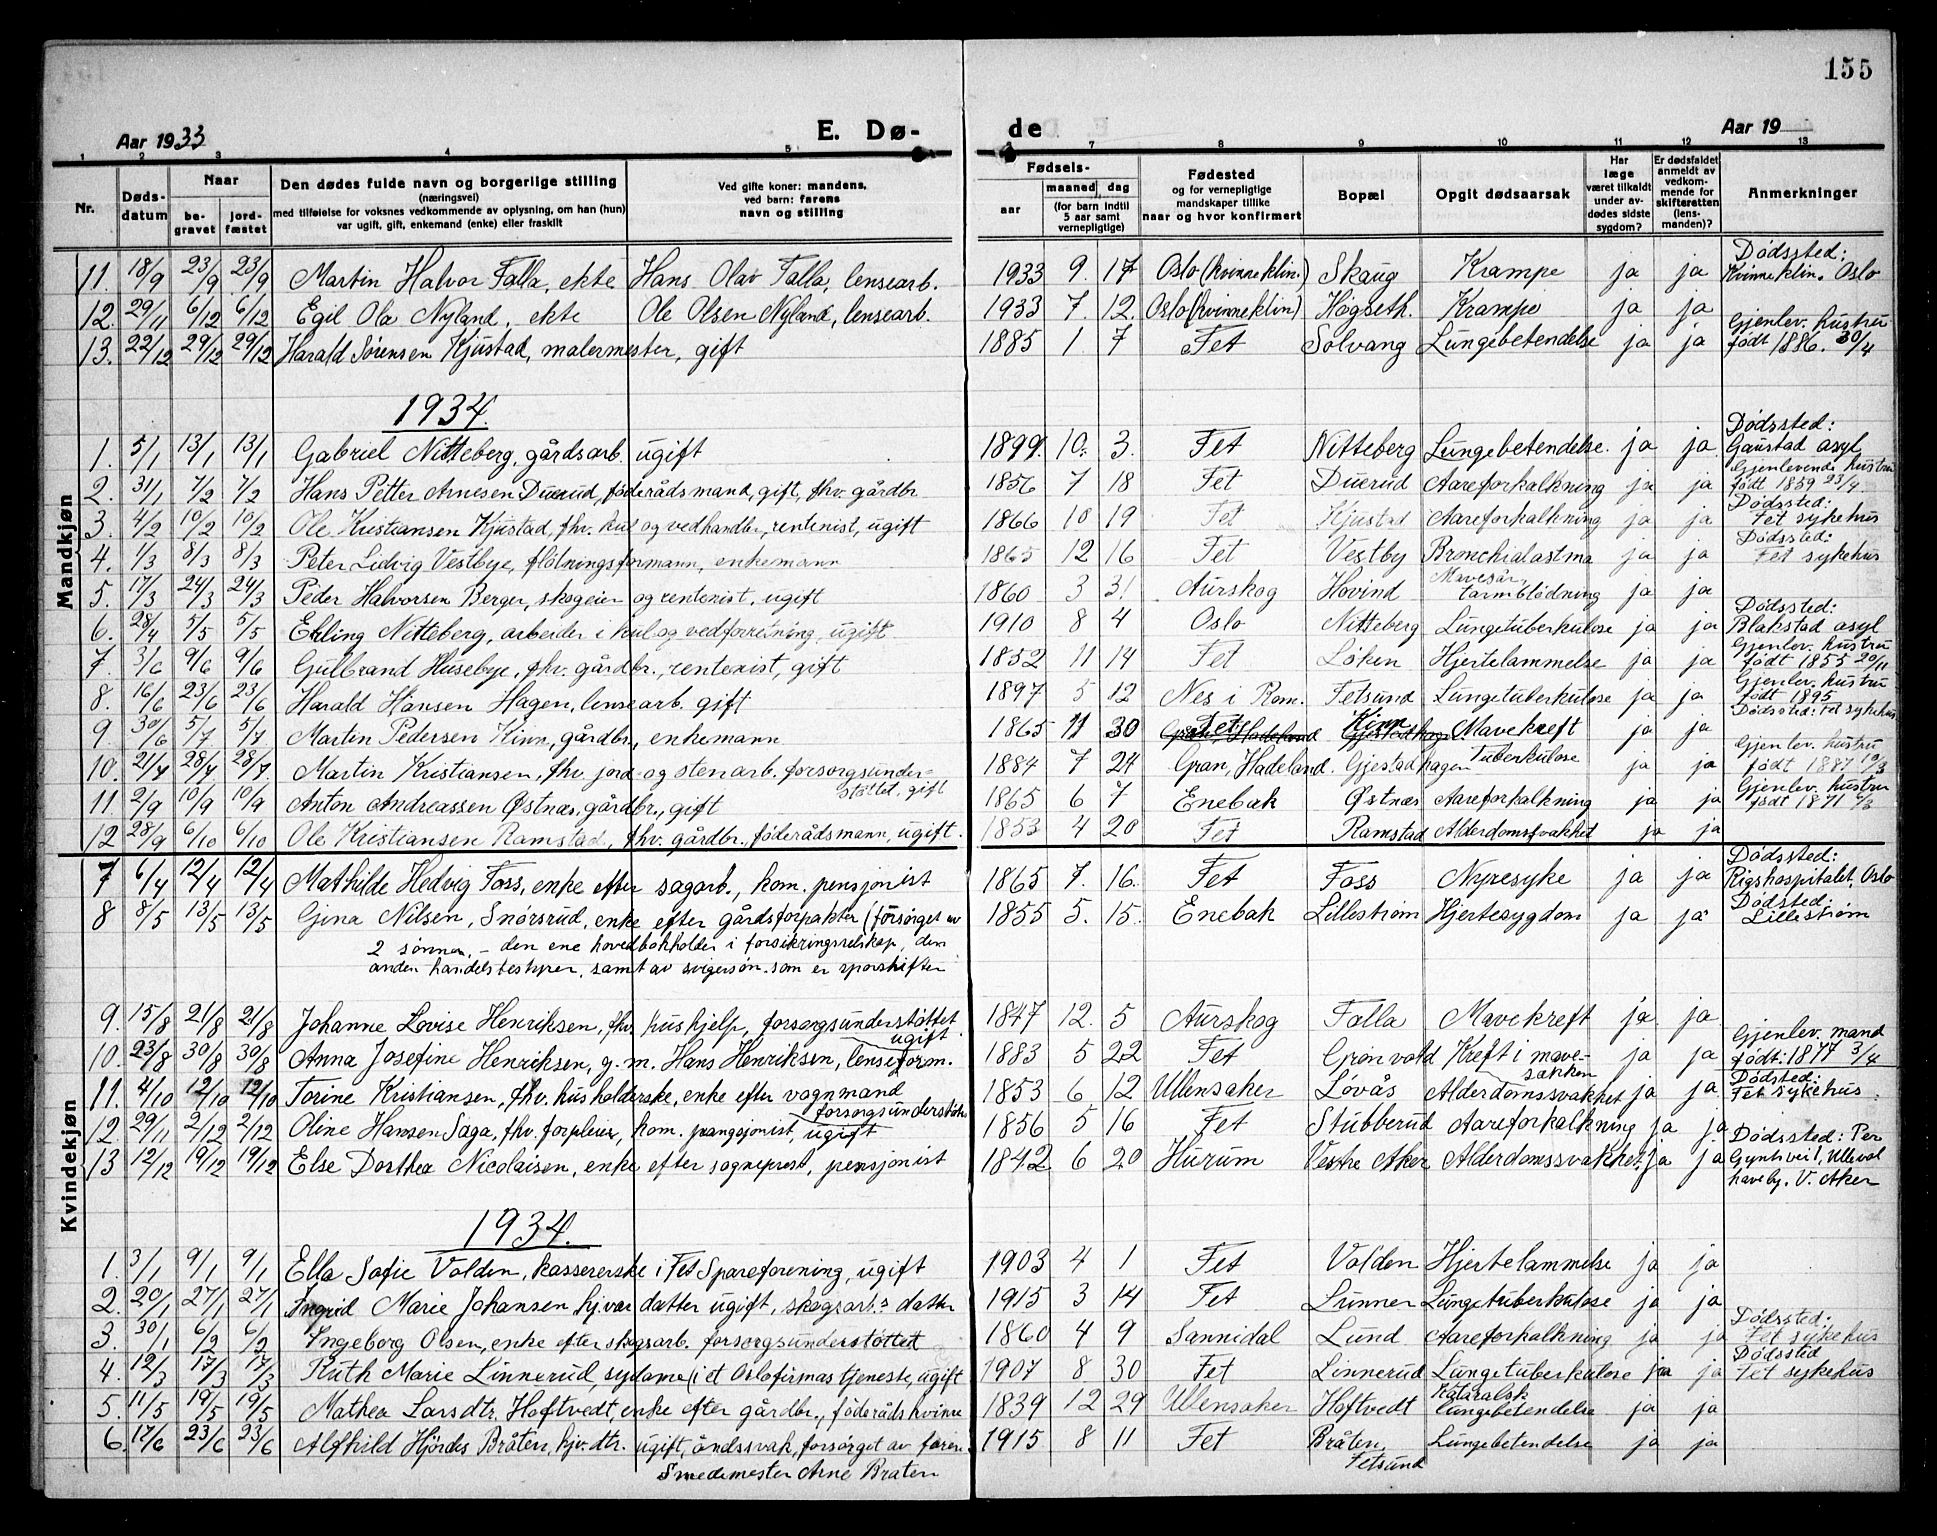 155
Aar 1933 E. Dø- de Aar 19
1 2 3 4 5 6 7 8 9 10 11 12 13
Nr. Døds-datum Naar be-gravet jord-fæstet Den dødes fulde navn og borgerlige stilling (næringsvei) med tilføielse for voksnes vedkommende av oplysning, om han (hun) var ugift, gift, enkemand (enke) eller fraskilt Ved gifte koner: mandens, ved barn: farens navn og stilling Fødsels- aar maaned dag (for barn indtil 5 aar samt vernepligtige) Fødested og for vernepligtige mandskaper tillike naar og hvor konfirmert Bopæl Opgit dødsaarsak Har læge været tilkaldt under av-dødes sidste sygdom? Er dødsfaldet anmeldt av vedkom-mende for skifteretten (lens-manden)? Anmerkninger
Mandkjøn
11. 18/9 23/9 23/9 Martin Halvor Falla, ekte Hans Olav Falla, lensearb. 1933 9. 17 Oslo (kvinneklin.) Skaug Krampe ja ja Dødssted: Kvinneklin. Oslo
12. 29/11 6/12 6/12 Egil Ola Nyland, ekte Ole Olsen Nyland, lensearb. 1933 7. 12. Oslo (kvinneklin) Høgseth. Krampe ja ja
13. 22/12 29/12 29/12 Harald Sørensen Kjustad, malermester, gift 1885 1 7 Fet Solvang Lungebetendelse ja ja Gjenlev. hustru født 1886. 30/4
1934.
1. 5/1 13/1 13/1 Gabriel Nitteberg, gårdsarb. ugift 1899. 10. 3. Fet Nitteberg Lungebetendelse. ja ja Dødssted: Gaustad asyl
2. 31/1 7/2 7/2 Hans Petter Arnesen Duerud, føderådsmand, gift, fhv. gårdbr. 1856 7 18 Fet Duerud Aareforkalkning ja ja Gjenlevende hustru født 1859 23/4.
3. 4/2 10/2 10/2 Ole Kristiansen Kjustad, fhv. kul og vedhandler, rentenist, ugift 1866 10 19 Fet Kjustad Aareforkalkning ja ja Dødssted: Fet sykehus
4. 1/3 8/3 8/3 Peter Ludvig Vestbye, fløtningsformann, enkemann 1865 12 16 Fet Vestby Bronchialastma ja ja Dødssted: Fet sykehus
5. 17/3 24/3 24/3 Peder Halvorsen Berger, skogeier og rentenist, ugift 1860 3 31 Aurskog Hovind Mavesår, tarmblødning ja ja
6. 28/4 5/5 5/5 Erling Nitteberg, arbeider i kul og vedforretning, ugift 1910 8 4 Oslo Nitteberg Lungetuberkulose ja ja Dødssted: Blakstad asyl
7. 3/6 9/6 9/6 Gulbrand Husebye, fhv. gårdbr., rentenist, gift 1852 11 14 Fet Løken Hjertelammelse ja ja Gjenlev. hustru født 1855 20/11
8. 16/6 23/6 23/6 Harald Hansen Hagen, lensearb. gift 1897 5 12 Nes i Rom. Fetsund Lungetuberkulose ja ja Gjenlev. hustru født 1895
9. 30/6 5/7 5/7 Martin Pedersen Kinn, gårdbr., enkemann 1865 11 30 Fet Kinn Mavekreft ja ja Dødssted: Fet sykehus
10. 21/7 28/7 28/7. Martin Kristiansen, fhv. jord- og stenarb. forsorgsunder-støttet, gift 1884 7 24 Gran, Hadeland. Gjestadhagen Tuberkulose ja ja Gjenlev. hustru født 1887 10/3
11. 2/9 10/9 10/9 Anton Andreassen Østnæs, gårdbr., gift 1865 6 7 Enebak Østnæs Aareforkalkning ja ja Gjenlev. hustru født 1871 6/3
12 28/9 6/10 6/10 Ole Kristiansen Ramstad, fhv. gårdbr., føderådsmann, ugift. 1853 4 20 Fet Ramstad Alderdomsvakhet ja ja
Kvindekjøn
7 6/4 12/4 12/4 Mathilde Hedvig Foss, enke efter sagarb., kom. pensjonist 1865 7. 16. Fet Foss Nyresyke ja ja Dødssted: Rigshospitalet, Oslo
8 8/5 13/5 13/5 Gina Nilsen, Snørsrud, enke efter gårdsforpakter (forsørget av 1855 5. 15. Enebak Lillestrøm Hjertesygdom ja ja Dødssted: Lillestrøm
2 sønner, - den ene hovedbokholder i forsikringsselskap, den
anden handelsbestyrer, samt av svigersøn som er sporskifter
9. 15/8 21/8 21/8 Johanne Lovise Henriksen, fhv. hushjelp, forsorgsunderstøttet ugift. 1847 12. 5 Aurskog Falla Mavekreft ja ja
10. 23/8 30/8 30/8 Anna Josefine Henriksen, g. m. Hans Henriksen, lenseform. 1883 5 22 Fet Grønvold Kreft i mave-sækken ja ja Gjenlev. mand født: 1877 3/4
11. 4/10 12/10 12/10 Torine Kristiansen, fhv. husholderske, enke efter vognmand forsorgsunderstøt. 1853 6 12 Ullensaker Løvås Alderdomssvakhet ja ja Dødssted: Fet sykehus.
12. 29/11 2/12 2/12 Oline Hansen Saga, fhv. forpleier, kom. pangsjonist, ugift 1856 5 16 Fet Stubberud Aareforkalkning ja ja
13 12/12 19/12 19/12 Else Dorthea Nicolaisen, enke efter sogneprest, pensjonist 1842 6 20 Hurum Vestre Aker Alderdomssvakhet. ja ja Dødssted: Per Gyntsvei 1, Ulleval haveby. V. Aker
1934.
1. 3/1 9/1 9/1 Ella Sofie Valden, kassererske i Fet Spareforening, ugift 1903 4 1 Fet Valden Hjertelammelse ja ja
2. 20/1 27/1 27/1 Ingrid Marie Johansen, hj.vær. datter ugift, skogsarb.s datter 1915 3 14 Fet Lunner Lungetuberkulose ja ja
3. 30/1 6/2 6/2 Ingeborg Olsen, enke efter skogsarb. forsorgsunderstøttet 1860 4 9 Sannidal Lund Aareforkalkning ja ja Dødssted: Fet sykehus
4. 12/3 17/3 17/3 Ruth Marie Linnerud, sydame (i et Oslofirmas tjeneste, ugift 1907 8 30 Fet Linnerud Lungetuberkulose ja ja Dødssted Fet sykehus
5. 11/5 19/5 19/5 Mathea Larsdtr. Hoftvedt, enke efter gårdbr., føderådskvinne 1839 12 29 Ullensaker Hoftvedt Kataralsk lungebetendelse ja ja
6. 17/6 23/6 23/6 Alfhild Hjørdis Bråten, hjv. dtr. ugift, åndssvak, forsørget av faren. 1915 8 11 Fet Bråten, Fetsund Lungebetendelse ja ja
Smedemester Arne Bråten